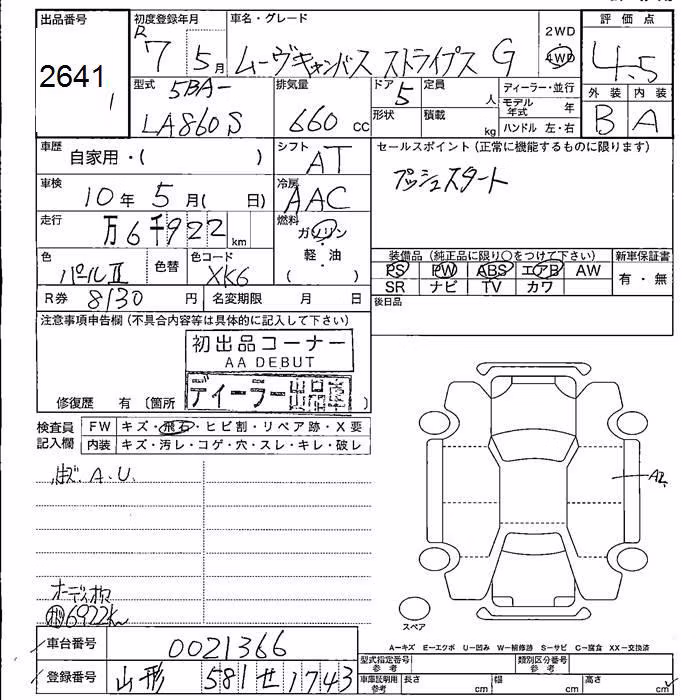 出品番号
2641
1
初度登録年月
R 7 5月
車名・グレード
ムーヴキャンバス ストライプス G
2WD
4WD
評価点
4.5
外装 内装
B A
型式
5BA-
LA860S
排気量
660 cc
ドア
5
定員
人
形状
積載
kg
ディーラー・並行
モデル年式 年
ハンドル 左・右
車歴
自家用・( )
シフト
AT
セールスポイント(正常に機能するものに限ります)
プッシュスタート
車検
10年 5月( 日)
冷房
AAC
走行
万6千922 km
燃料
ガソリン
・
軽・油
( )
色
パールII
色替
色コード
XK6
装備品(純正品に限り○をつけて下さい)
新車保証書
PS PW ABS エアB AW
有・無
SR ナビ TV カワ
R券 8130 円
名変期限 月 日
後日品
注意事項申告欄(不具合内容等は具体的に記入して下さい)
初出品コーナー
AA DEBUT
ディーラー出品車
修復歴 有 〔箇所 〕
検査員記入欄
FW キズ・飛石・ヒビ割・リペア跡・X要
内装 キズ・汚レ・コゲ・穴・スレ・キレ・破レ
A.U.
A2
オーディオレス
6922km
スペア
A−キズ E−エクボ U−凹み W−補修跡 S−サビ C−腐食 XX−交換済
車台番号
0021366
型式指定番号参考
類別区分番号参考
登録番号
山形 581 せ 1743
車庫証明用参考
長さ cm
幅 cm
高さ cm